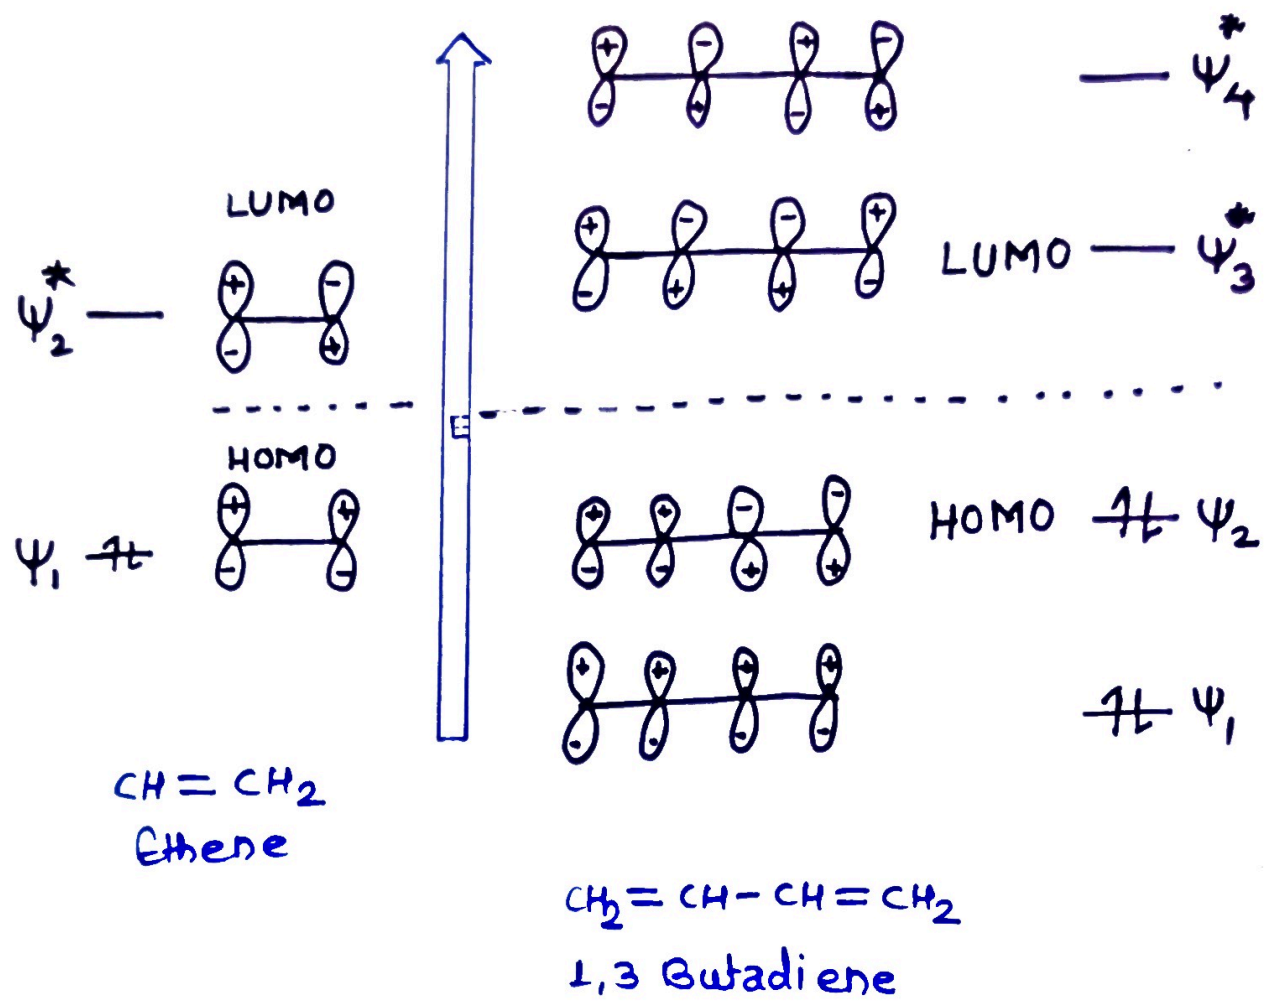 LUMO
Ψ₂*
+ -
- +
HOMO
Ψ₁
+ +
- -
CH = CH₂
Ethene
E
+ - + -
- + - +
Ψ₄*
+ - - +
- + + -
LUMO Ψ₃*
+ + - -
- - + +
HOMO Ψ₂
+ + + +
- - - -
Ψ₁
CH₂ = CH - CH = CH₂
1,3 Butadiene